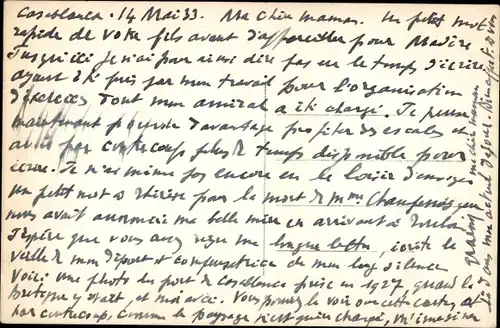 Casablanca. 14 Mai 33. Ma chère maman. Un petit mot
rapide de votre fils avant d'appareiller pour Madère.
Jusqu'ici je n'ai pour ainsi dire pas eu le temps d'écrire
ayant été pris par mon travail pour l'organisation
d'exercices dont mon amiral a été chargé. Je pense
maintenant pouvoir davantage profiter des escales et
avoir par contrecoup plus de temps disponible pour
écrire. Je n'ai même pas encore eu le loisir d'envoyer
un petit mot à Thérèse pour la mort de Mme que
nous avait annoncée ma belle mère en arrivant à Toulon.
J'espère que vous avez reçu ma longue lettre, écrite la
veille de mon départ et compensatrice de mon long silence
Voici une photo du port de Casablanca prise en 1927 quand le
Bretagne y était, et moi avec. Vous pouvez le voir sur cette carte,
par contrecoup, comme le paysage s'est qu'en changé,
ma chère maman